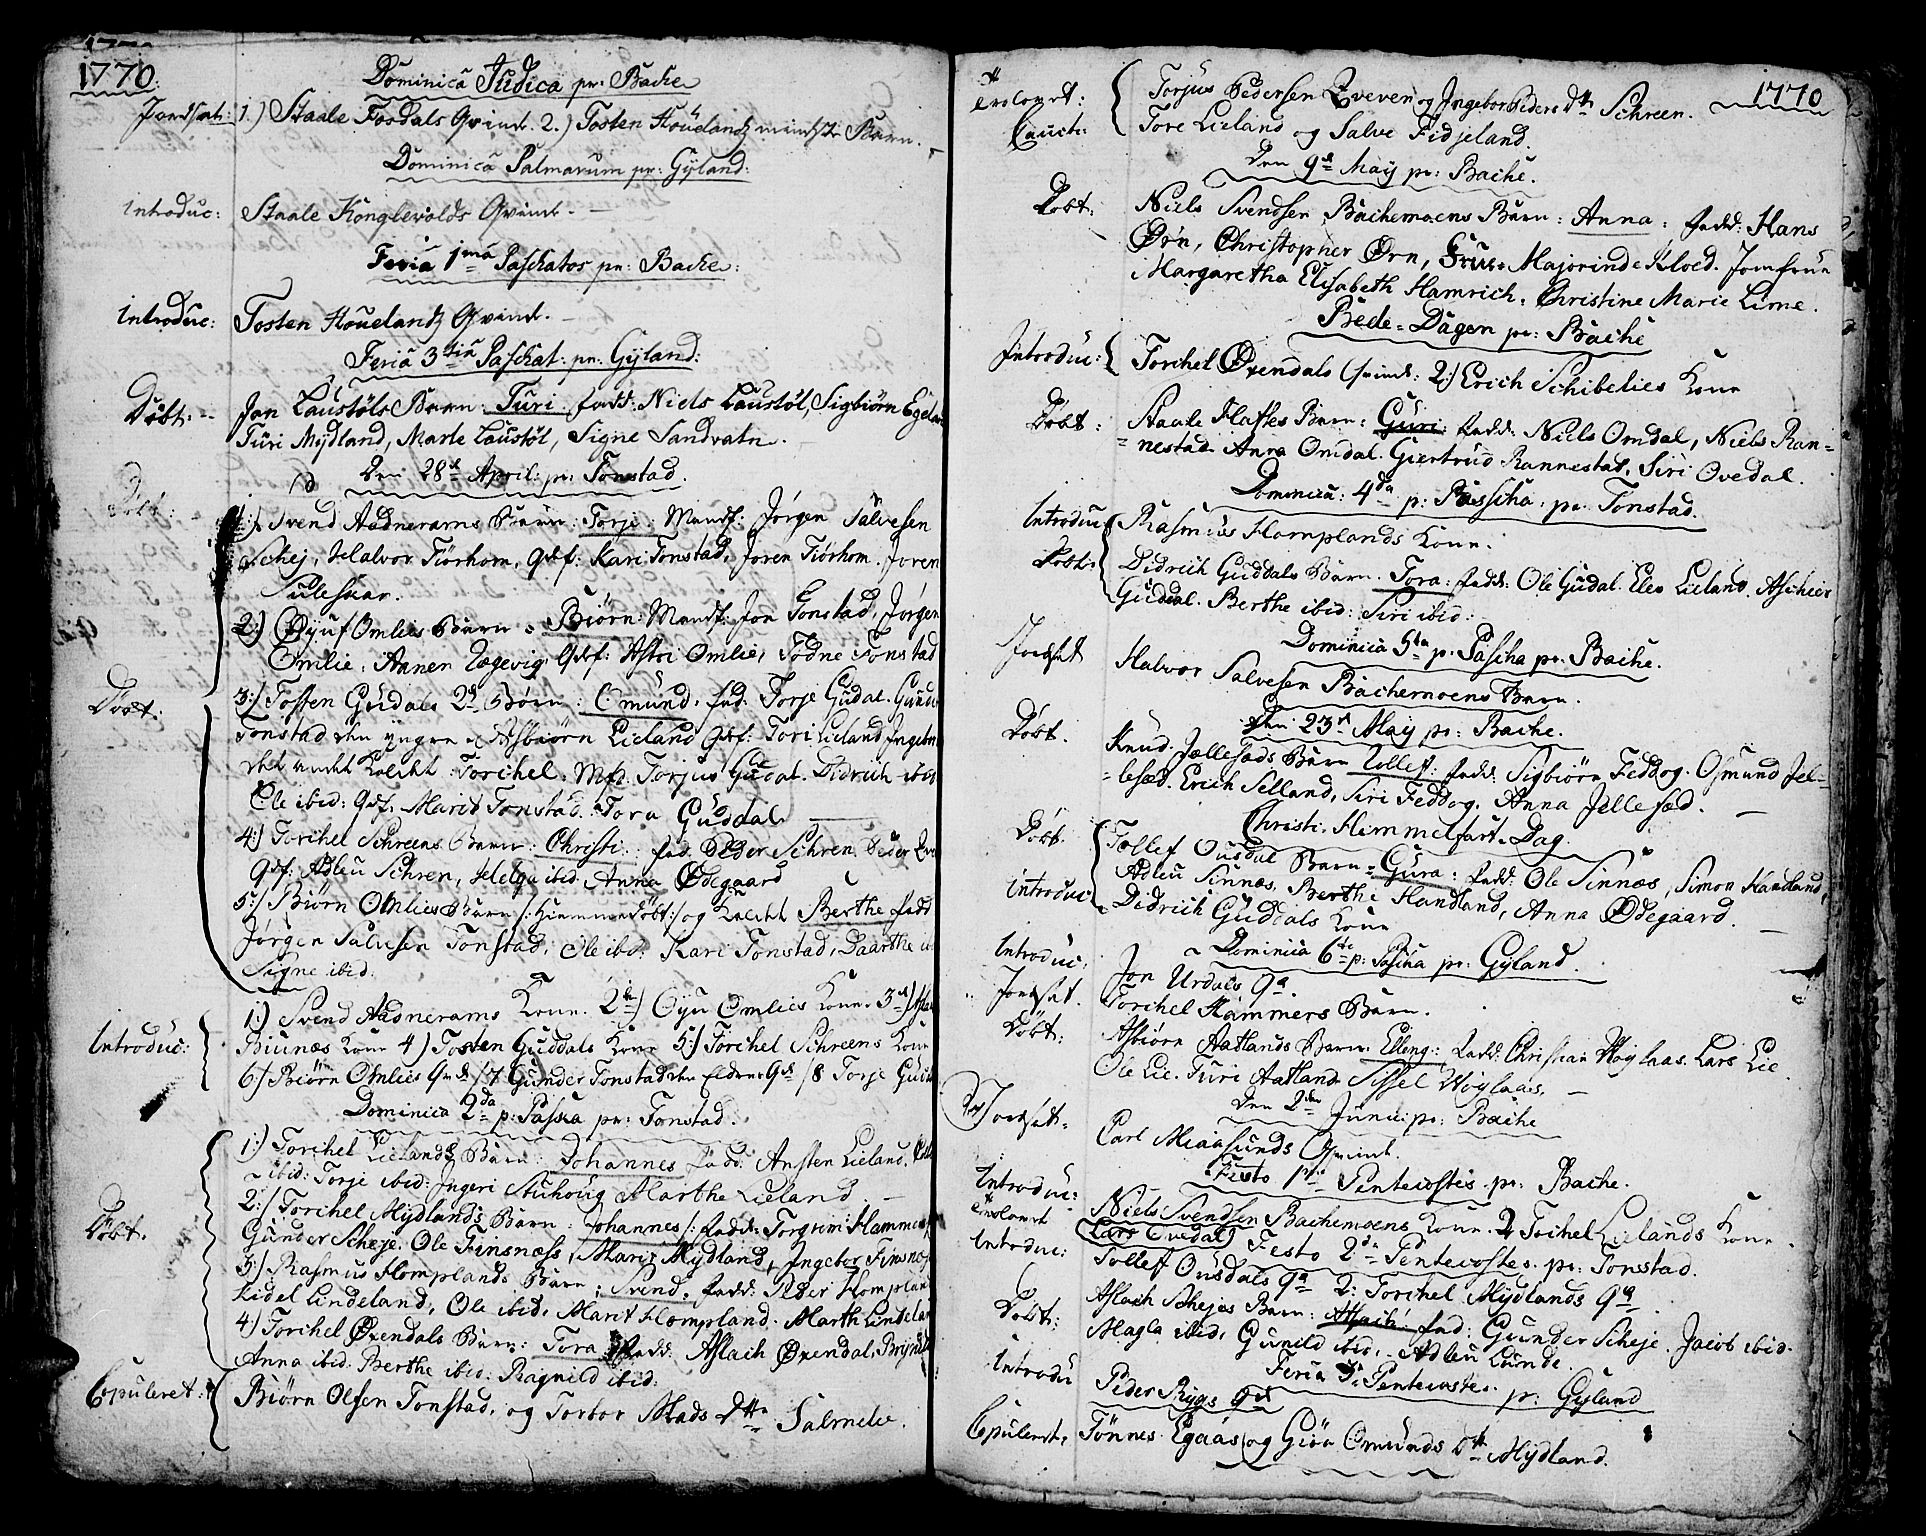 1770.
Dominica Judica pr: Backe
Jordsat: 1.) Staale Fosdals Qvind. 2.) Tosten Høuelandz mindste Barn.
Dominica Palmarum pr: Gÿland:
Introduc: Staale Konglevolds Qvind.
Feria 1ma Paschatos pr: Backe:
Introduc: Tosten Høuelandz Qvind.
Feria 3tia Paschat: pr: Gÿland:
Døbt: Jon Laustøls Barn: Turi fadd: Niels Laustøl, Sigbiørn Egela
Turi Mÿdland, Marte Laustøl, Signe Sandvatn.
Den 28d April: pr: Tonstad.
Døbt:
1:) Svend Aadnerams Barn: Torje: Mandf: Jørgen Salvesen
Schej, Halvor Tiørhom, Qvf: Kari Tonstad, Joren Tiørhom. Joren
Suleskar.
2:) Øÿuf Omlies Barn: Biørn: Mandf: Jon Tonstad, Jørgen
Omlie, Annen Qvf: Astri Omlie, Todne Tonstad
Døbt:
3:) Tosten Gudals 2d Børn: Omund, fad. Torje Gudal. Gunder
Tonstad den yngre Asbiørn Lieland Qvf: Tori Lieland, Ingebor
det andet kaldet: Torchel, Mf: Torjus Gudal. Didrich ibid
Ole ibid: Qvf: Marit Tonstad. Tora Guddal
4:) Torchel Schreens Barn: Christi: fad. Peder Schren, Peder
Qvf: Adleu Schren, Helga ibid, Anna Ødegaard
5:) Biørn Omlies Barn /: Hiemmedøbt:/ og kaldet Berthe fadd
Jørgen Salvesen Tonstad, Ole ibd: Kari Tonstad, Daarthe
Signe ibid:
Introduc:
1:) Svend Aadnerams Kone. 2d) Oÿu Omlies Kone. 3d)
Biunæs Kone 4) Tosten Guddals Kone 5:) Torchel Schreens Kone
6:) Biørn Omlies Qvd /7 Gunder Tonstad den eldres Qd /8 Torje
Dominica 2da p: Paska pr: Tonstad.
Døbt.
1:) Torchel Lielands Barn: Johannes fadd: Ansten Lieland,
ibid: Torje ibid: Ingeri Stuhoug Marthe Lieland.
2:) Torchel Mÿdlands Barn: Johannes /: fadd: Torgrim Hammer,
Gunder Scheje. Ole Finsnæss, Marie Mÿdland, Ingebor Finsnæs
3:) Rasmus Homplands Barn: Svend. fadd: Peder Hompland
Kidel Lindeland, Ole ibid. Marit Hompland. Marth Lindeland
4) Torchel Øxendals Barn: Tora fadd: Aslach Øxendal,
Anna ibid: Berthe ibid: Ragnild ibid:
Copuleret: Biørn Olsen Tonstad, og Torbor Mads Dttr Salmele.
1770
Trolovet: Torjus Pedersen Eveven og Ingebor Peders Dttr Schreen.
Cauct: Tore Lieland og Salve Fidjeland.
Den 9d Maÿ pr: Bache.
Døbt: Niels Svendsen Bachemoens Barn: Anna: fadd: Hans
Ørn, Christopher Ørn, Frue Majorinde Kloed. Jomfrue
Margaretha Elisabeth Hamrich, Christine Marie Lime.
Bede-Dagen pr: Bache
Introduc: Torchel Øxendals Qvind: 2:) Erich Schibelies Kone
Døbt: Staale Haftes Barn: Guri: fadd: Niels Omdal, Niels Ran-
nestad Anna Omdal. Giertrud Rannestad, Siri Ovedal.
Dominica: 4da p: Pascha: pr: Tonstad.
Introduc Rasmus Homplands Kone.
Døbt: Didrich Guddals Barn. Tora: fadd: Ole Gudal. Elev Lieland, Ascheir
Guddal. Berthe ibid: Siri ibid:
Dominica 5ta p: Pascha pr: Bache.
Jordsat Halvor Salvesen Bachemoens Barn.
Den 23d Maÿ pr: Bache.
Døbt. Knud Jællesads Barn Tollef: fadd: Sigbiørn Feddog. Osmund Jel-
lesæd. Erich Selland, Siri Feddog. Anna Jellesæd.
Christi Himmelfart-Dag.
Døbt. Tollef Ousdal Barn: Gura: fadd: Ole Sinnæs, Simon Handland,
Adleu Sinnæs, Berthe Handland, Anna Ødegaard.
Introduc Didrich Guddals Kone
Dominica 6te p: Pascha pr: Gÿland.
Introduc. Jon Urdals Qd.
Jordsat. Torchel Hammers Barn.
Døbt: Asbiørn Aatlands Barn: Elleng: Fadd: Christian Høÿlaas. Lars Lie
Ole Lie. Turi Aatland Sissel Høÿlaas.
Den 2den Junii pr: Bache
Jordsat. Carl Miaasunds Qvind.
Festo 1mo Pentecostes. pr: Bache.
Introduc: Niels Svendsen Bachemoens Kone. 2 Torchel Lielands Kone
Trolovet Lars Ovedal Festo 2da Pentecostes. pr: Tonstad.
Introduc: Tollef Ousdals Qd 2: Torchel Mÿdlands Qd.
Døbt: Aslach Schejes Barn: Aslach: fad: Gunder Scheje. Jacob ibid.
Magla ibid, Gunild ibid, Adleu Lunde.
Feria 3tia Pentecostes. pr: Gÿland
Introdu Peder Rÿgs Qd
Copuleret, Tønnes Egaas og Giøa Omunds Dtr Mÿdland.